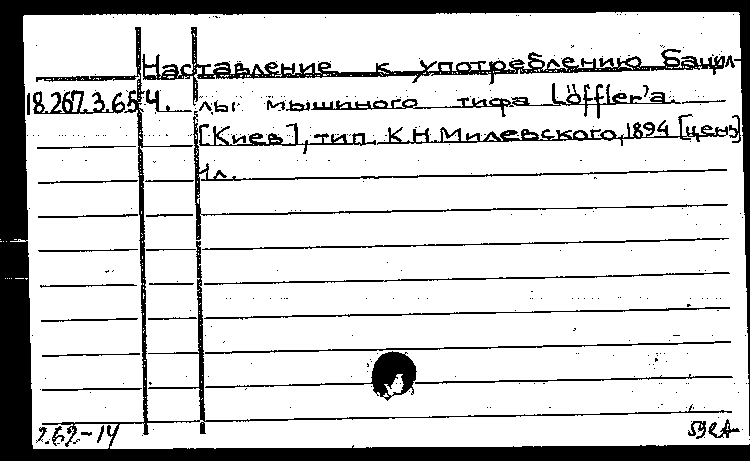 Наставление к употреблению бацил-
18.267.3.65 Ч. лы мышиного тифа Löffler'а.
[Киев], тип. К.Н.Милевского, 1894 [ценз]
1л.
262-14